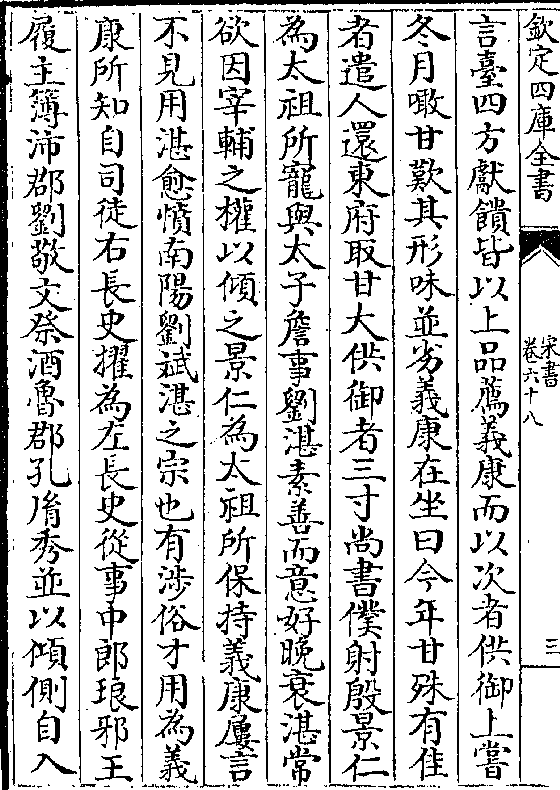 欽定四庫全書
宋書
卷六十八
三
言臺四方獻饋皆以上品薦義康而以次者供御上嘗
冬月噉甘歎其形味並劣義康在坐曰今年甘殊有佳
者遣人還東府取甘大供御者三寸尚書僕射殷景仁
為太祖所寵與太子詹事劉湛素善而意好晚衰湛常
欲因宰輔之權以傾之景仁為太祖所保持義康屢言
不見用湛愈憤南陽劉斌湛之宗也有涉俗才用為義
康所知自司徒右長史擢為左長史從事中郎琅邪王
履主簿沛郡劉敬文祭酒魯郡孔胤秀並以傾側自入